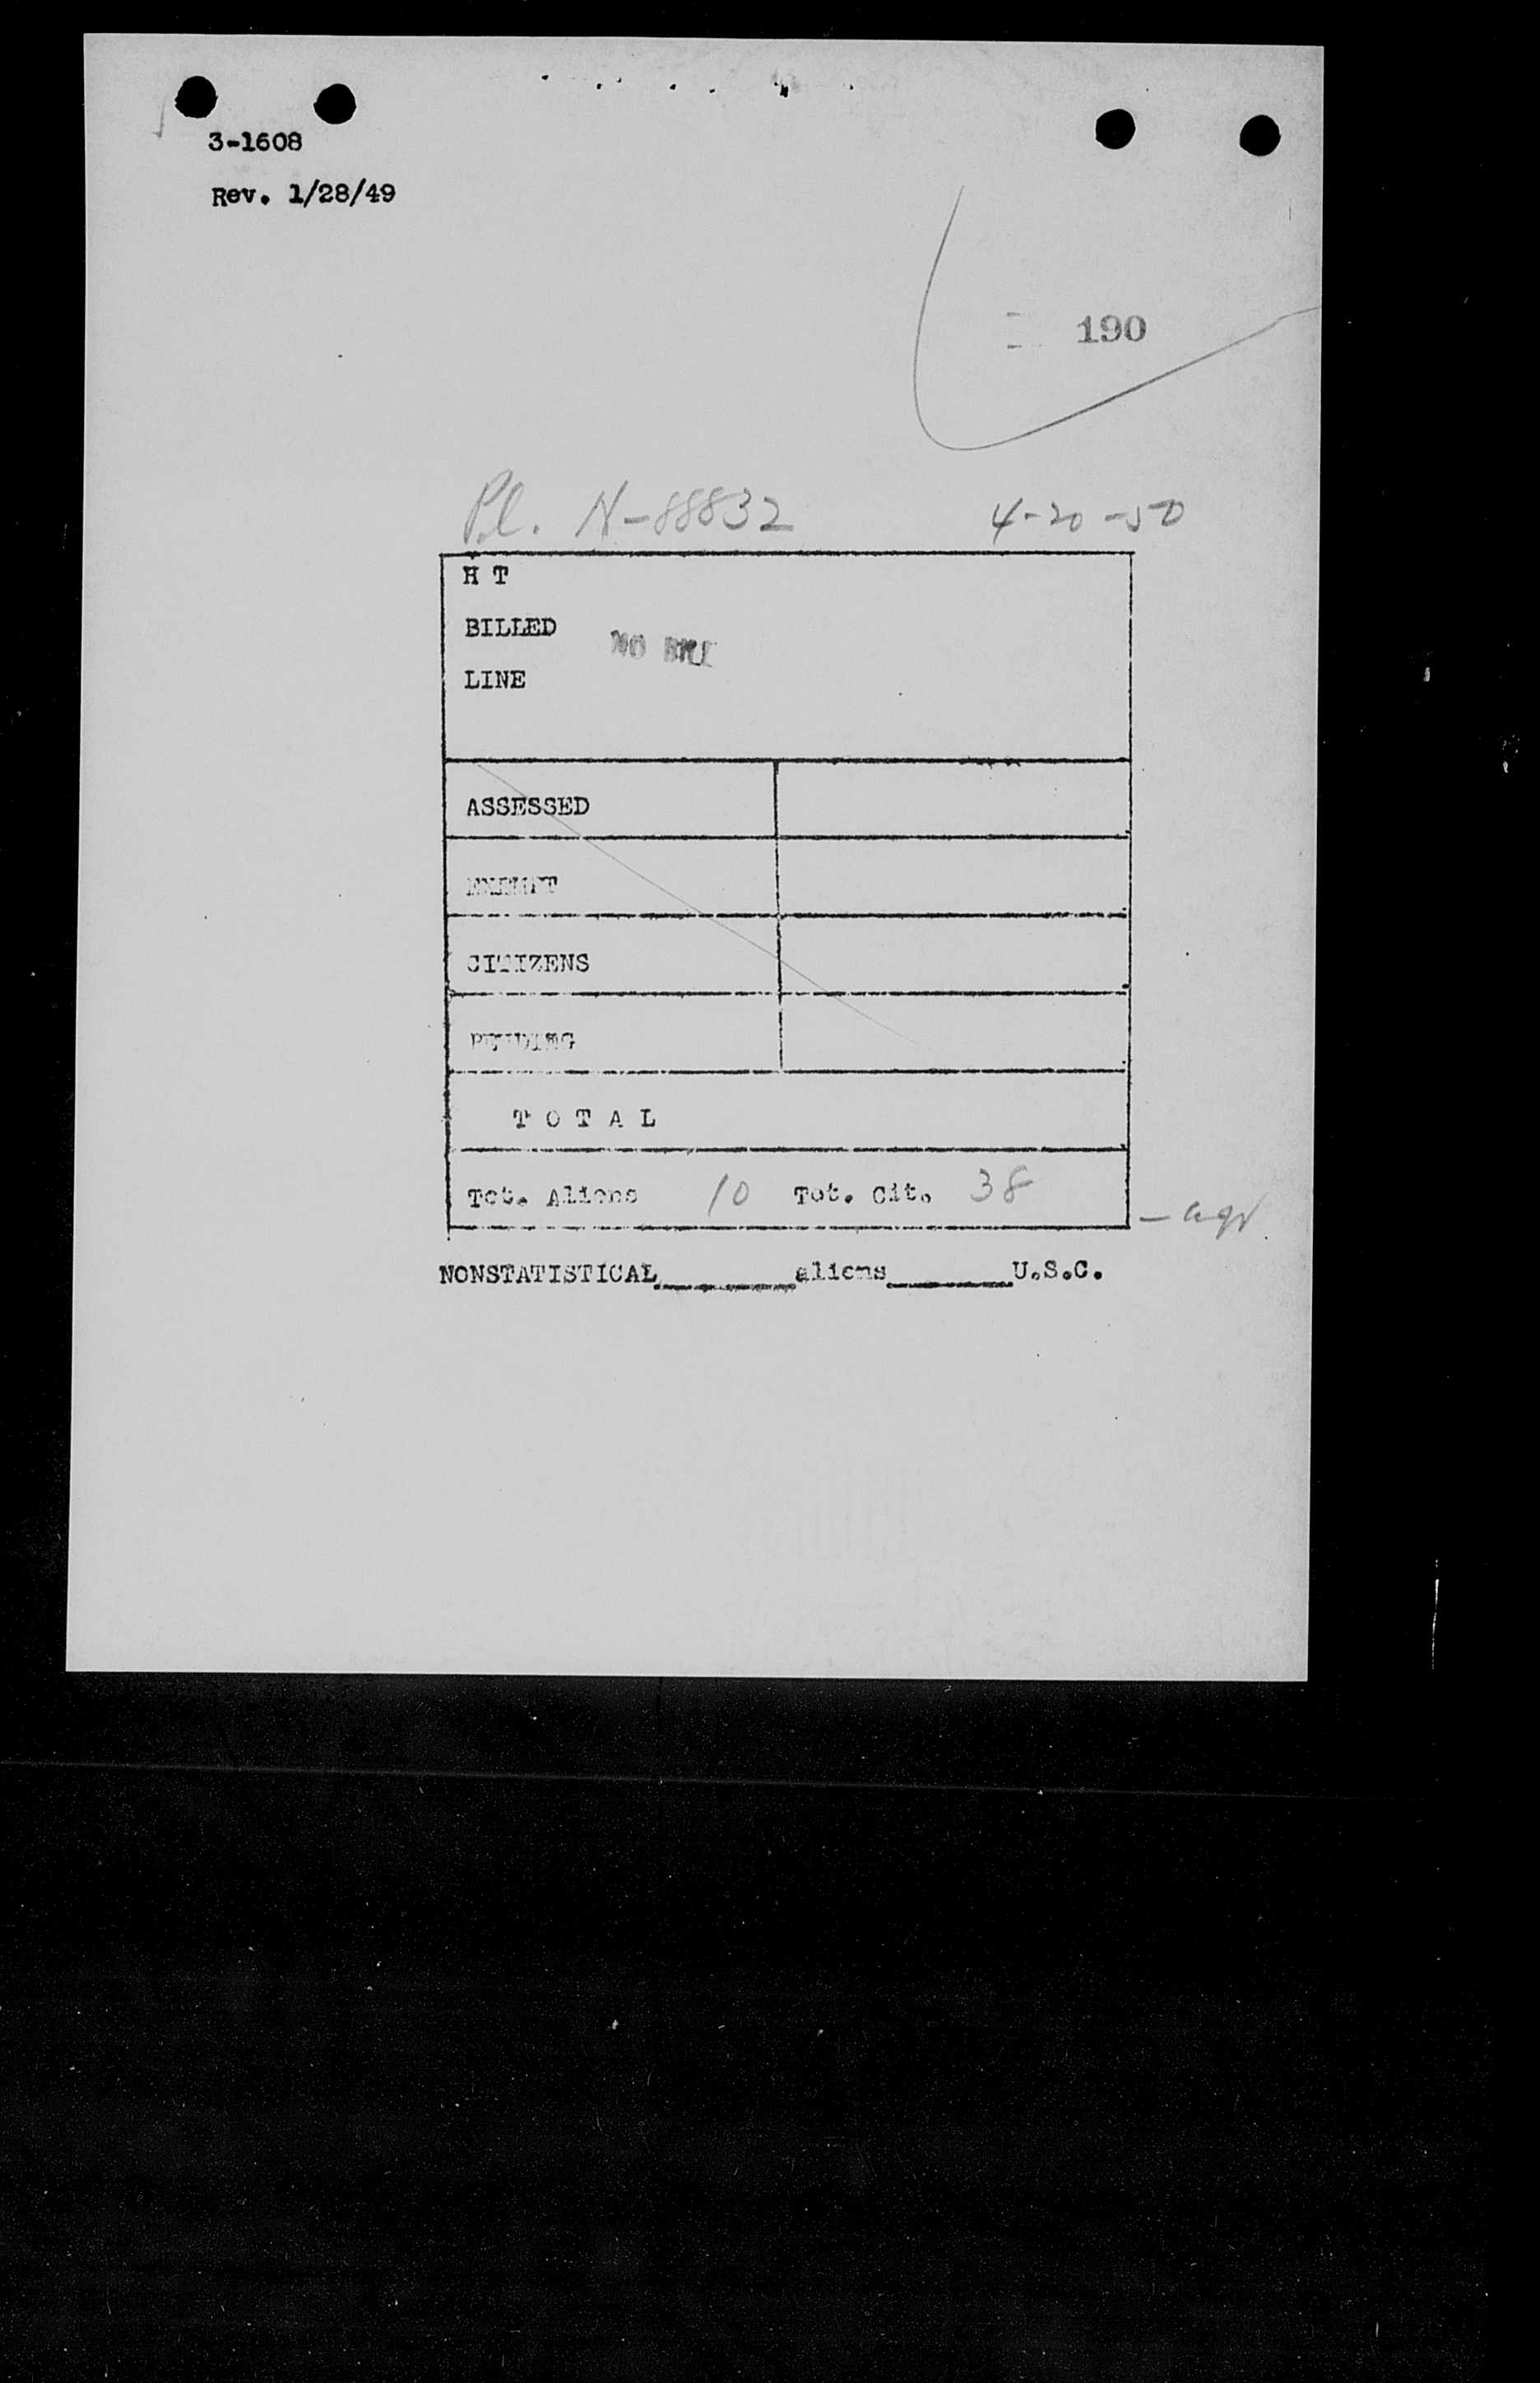 3-1608
Rev. 1/28/49
190
Pl. N-88832 4-20-50
H T
BILLED
NO BILL
LINE
ASSESSED
EXEMPT
CITIZENS
PENDING
T O T A L
Tot. Aliens 10 Tot. Cit. 38
NONSTATISTICAL aliens U.S.C.